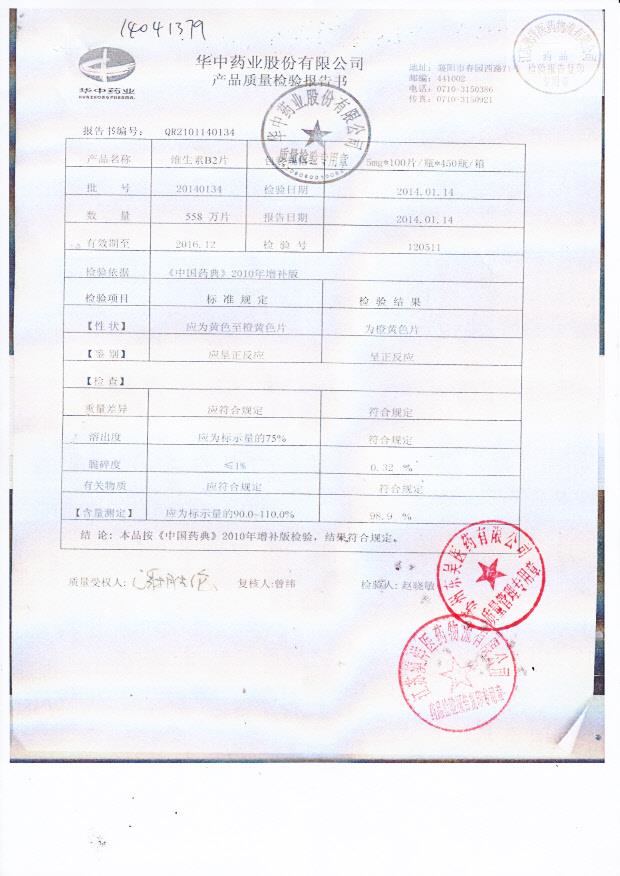 14041379
华中药业
HUAZHONG PHARMA
华中药业股份有限公司
产品质量检验报告书
地址：襄阳市春园西路
邮编：441002
电话：0710-3150386
传真：0710-3150921
药品
检验报告复印
专用章
华中药业股份有限公司
质量检验专用章
报告书编号： QR2101140134
产品名称 维生素B2片 5mg*100片/瓶*450瓶/箱
批 号 20140134 检验日期 2014.01.14
数 量 558 万片 报告日期 2014.01.14
有效期至 2016.12 检 验 号 120511
检验依据 《中国药典》2010年增补版
检验项目 标 准 规 定 检 验 结 果
【性 状】 应为黄色至橙黄色片 为橙黄色片
【鉴 别】 应呈正反应 呈正反应
【检 查】
重量差异 应符合规定 符合规定
溶出度 应为标示量的75% 符合规定
脆碎度 ≤1% 0.32 %
有关物质 应符合规定 符合规定
【含量测定】 应为标示量的90.0~110.0% 98.9 %
结 论：本品按《中国药典》2010年增补版检验，结果符合规定。
质量受权人： 复核人:曾纬 检验人：赵晓敏
东吴医药有限公司
质量管理专用章
医药物流有限公司